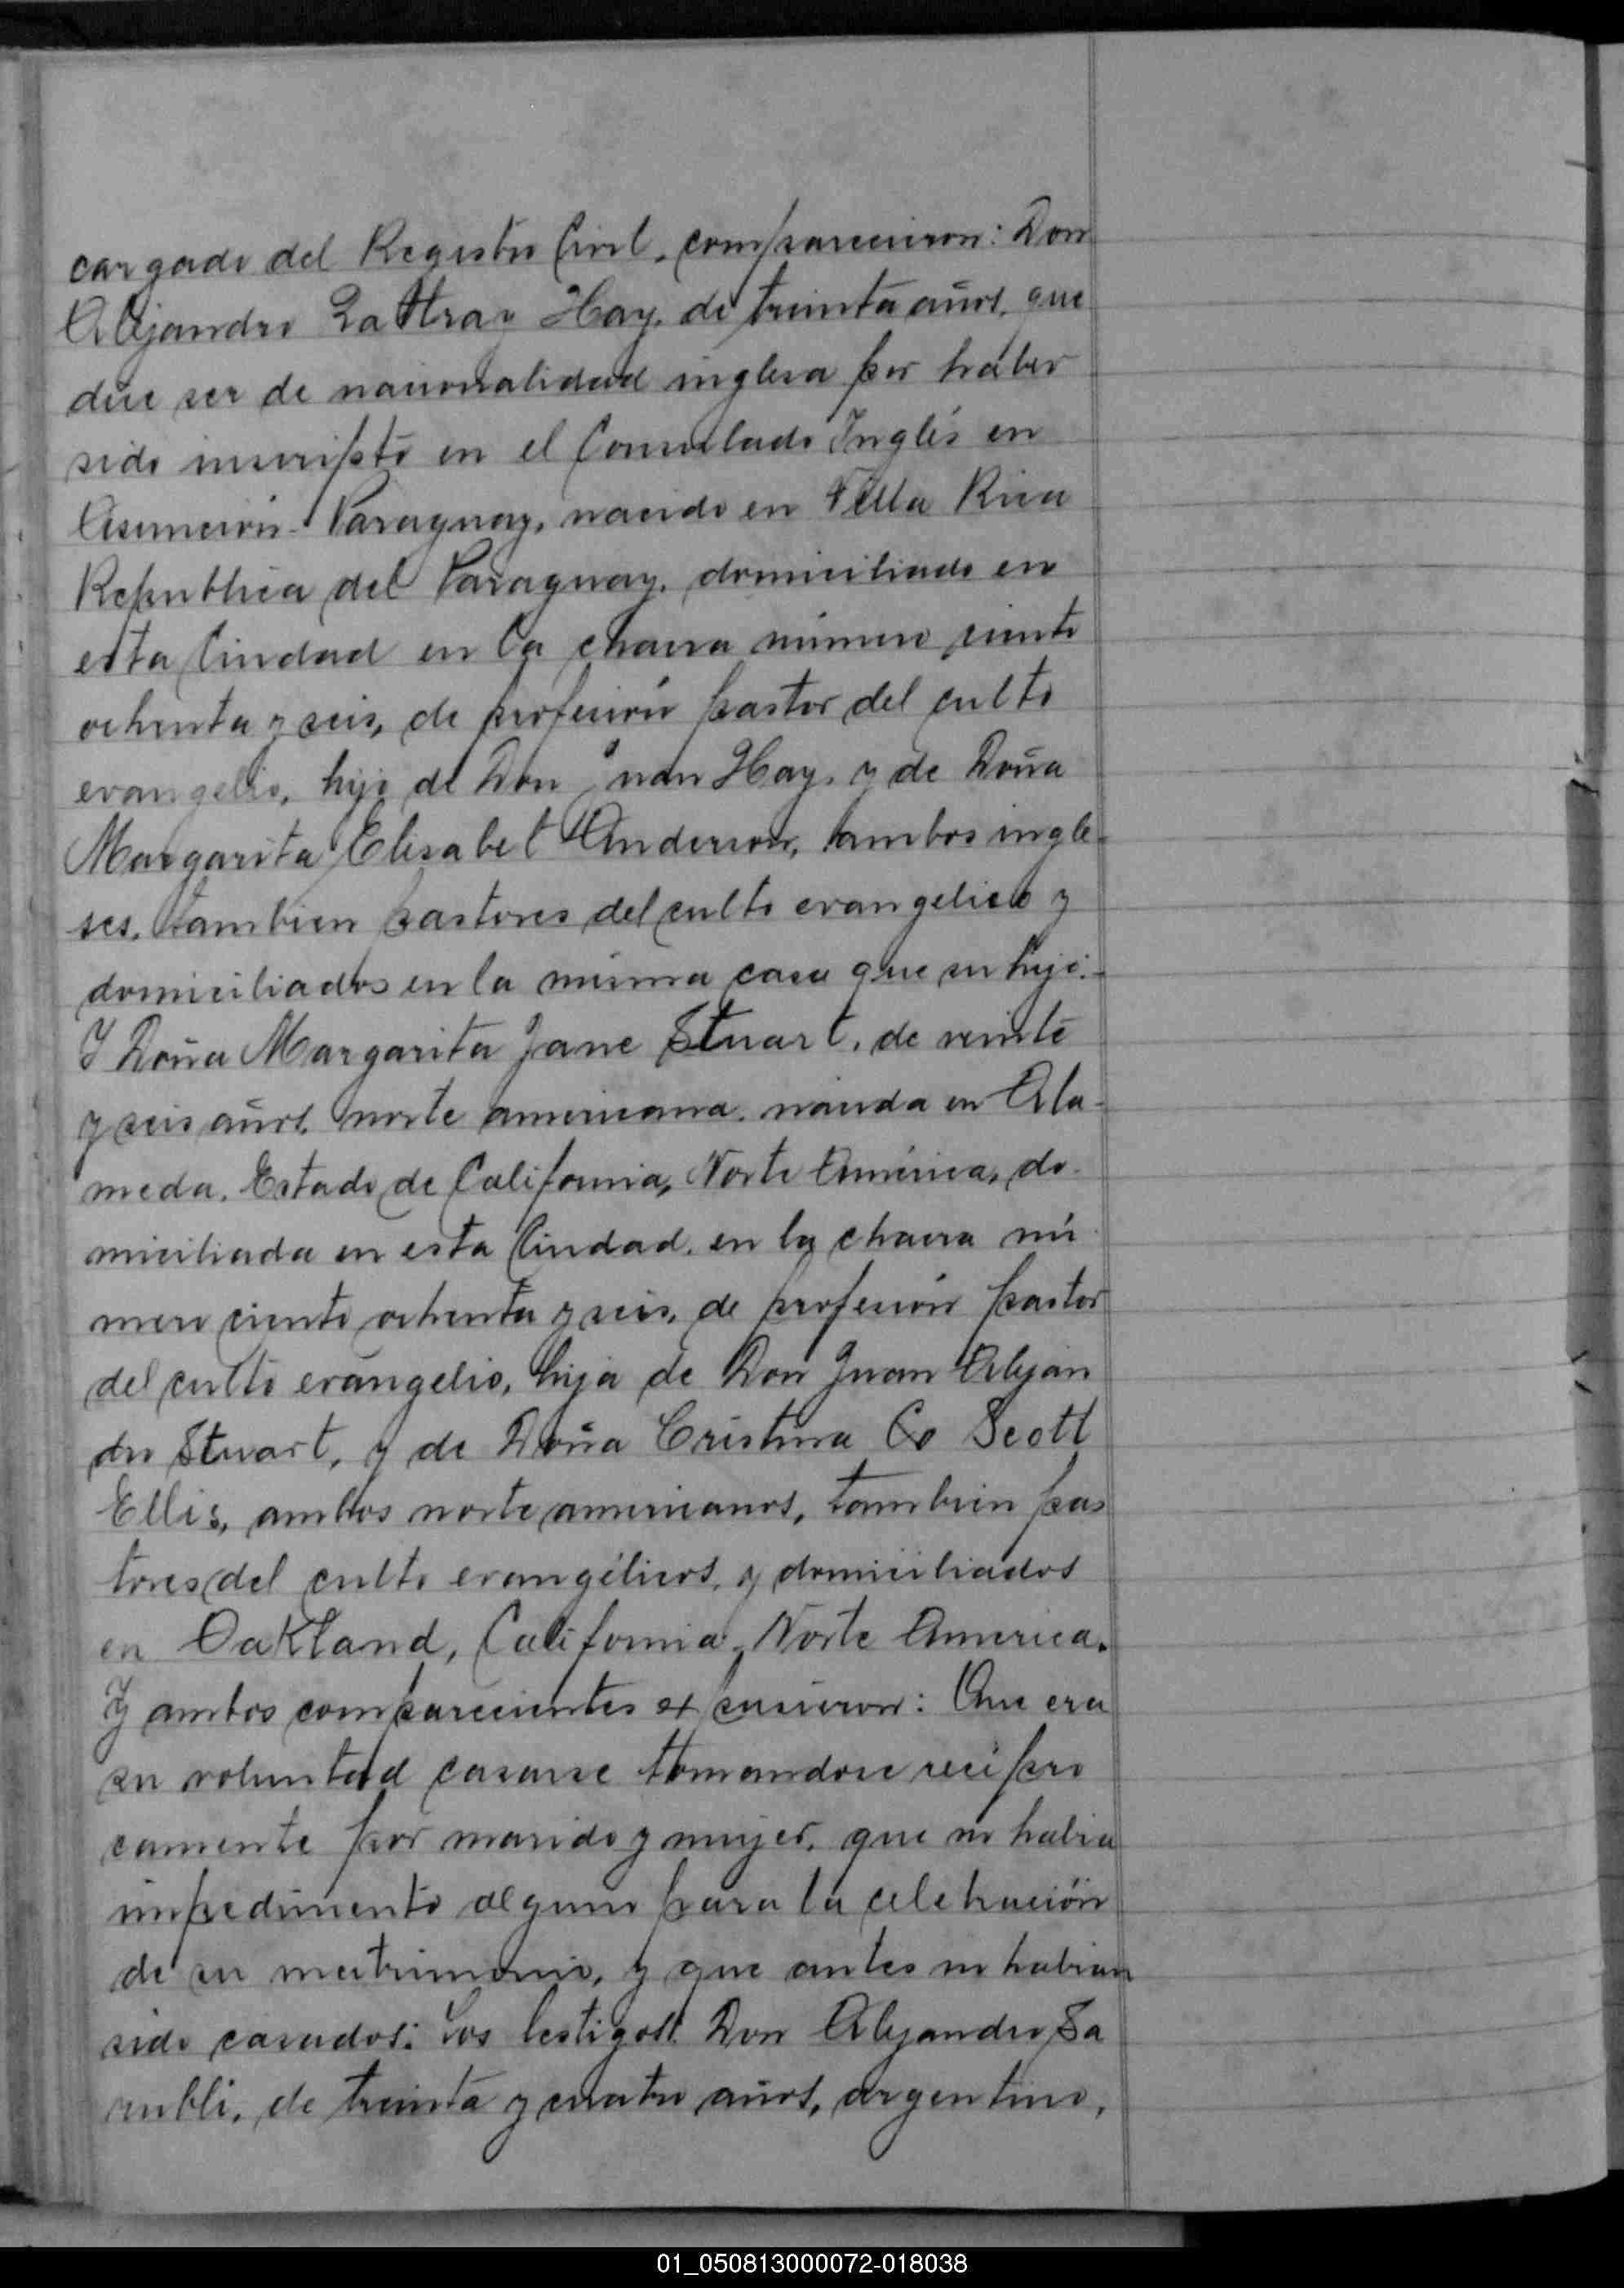 cargado del Registro Civil, comparecieron: Don
Alejandro Rattray Hay, de treinta años, que
dice ser de nacionalidad inglesa por haber
sido inscripto en el Consulado Inglés en
Asunción-Paraguay, nacido en Villa Rica
Republica del Paraguay, domiciliado en
esta Ciudad en la chacra número ciento
ochenta y seis, de profesión pastor del culto
evangelio, hijo de Don Juan Hay, y de Doña
Margarita Elisabet Anderson, ambos ingle-
ses, tambien pastores del culto evangelico y
domiciliados en la misma casa que su hijo.-
Y Doña Margarita Jane Stuart, de veinte
y seis años, norte americana, nacida en Ala-
meda, Estado de California, Norte América, do-
miciliada en esta Ciudad, en la chacra nú
mero ciento ochenta y seis, de profesión pastor
del culto evangelio, hija de Don Juan Alejan
dro Stuart, y de Doña Cristina Scott
Ellis, ambos norte americanos, tambien pas
tores del culto evangélicos, y domiciliados
en Oakland, California, Norte America.
Y ambos comparecientes expusieron: Que era
su voluntad casarse tomandose recipro
camente por marido y mujer, que no habia
impedimento alguno para la celebración
de su matrimonio, y que antes no habian
sido casados: Los testigos: Don Alejandro Sa
de treinta y cuatro años, argentino,
01_050813000072-018038